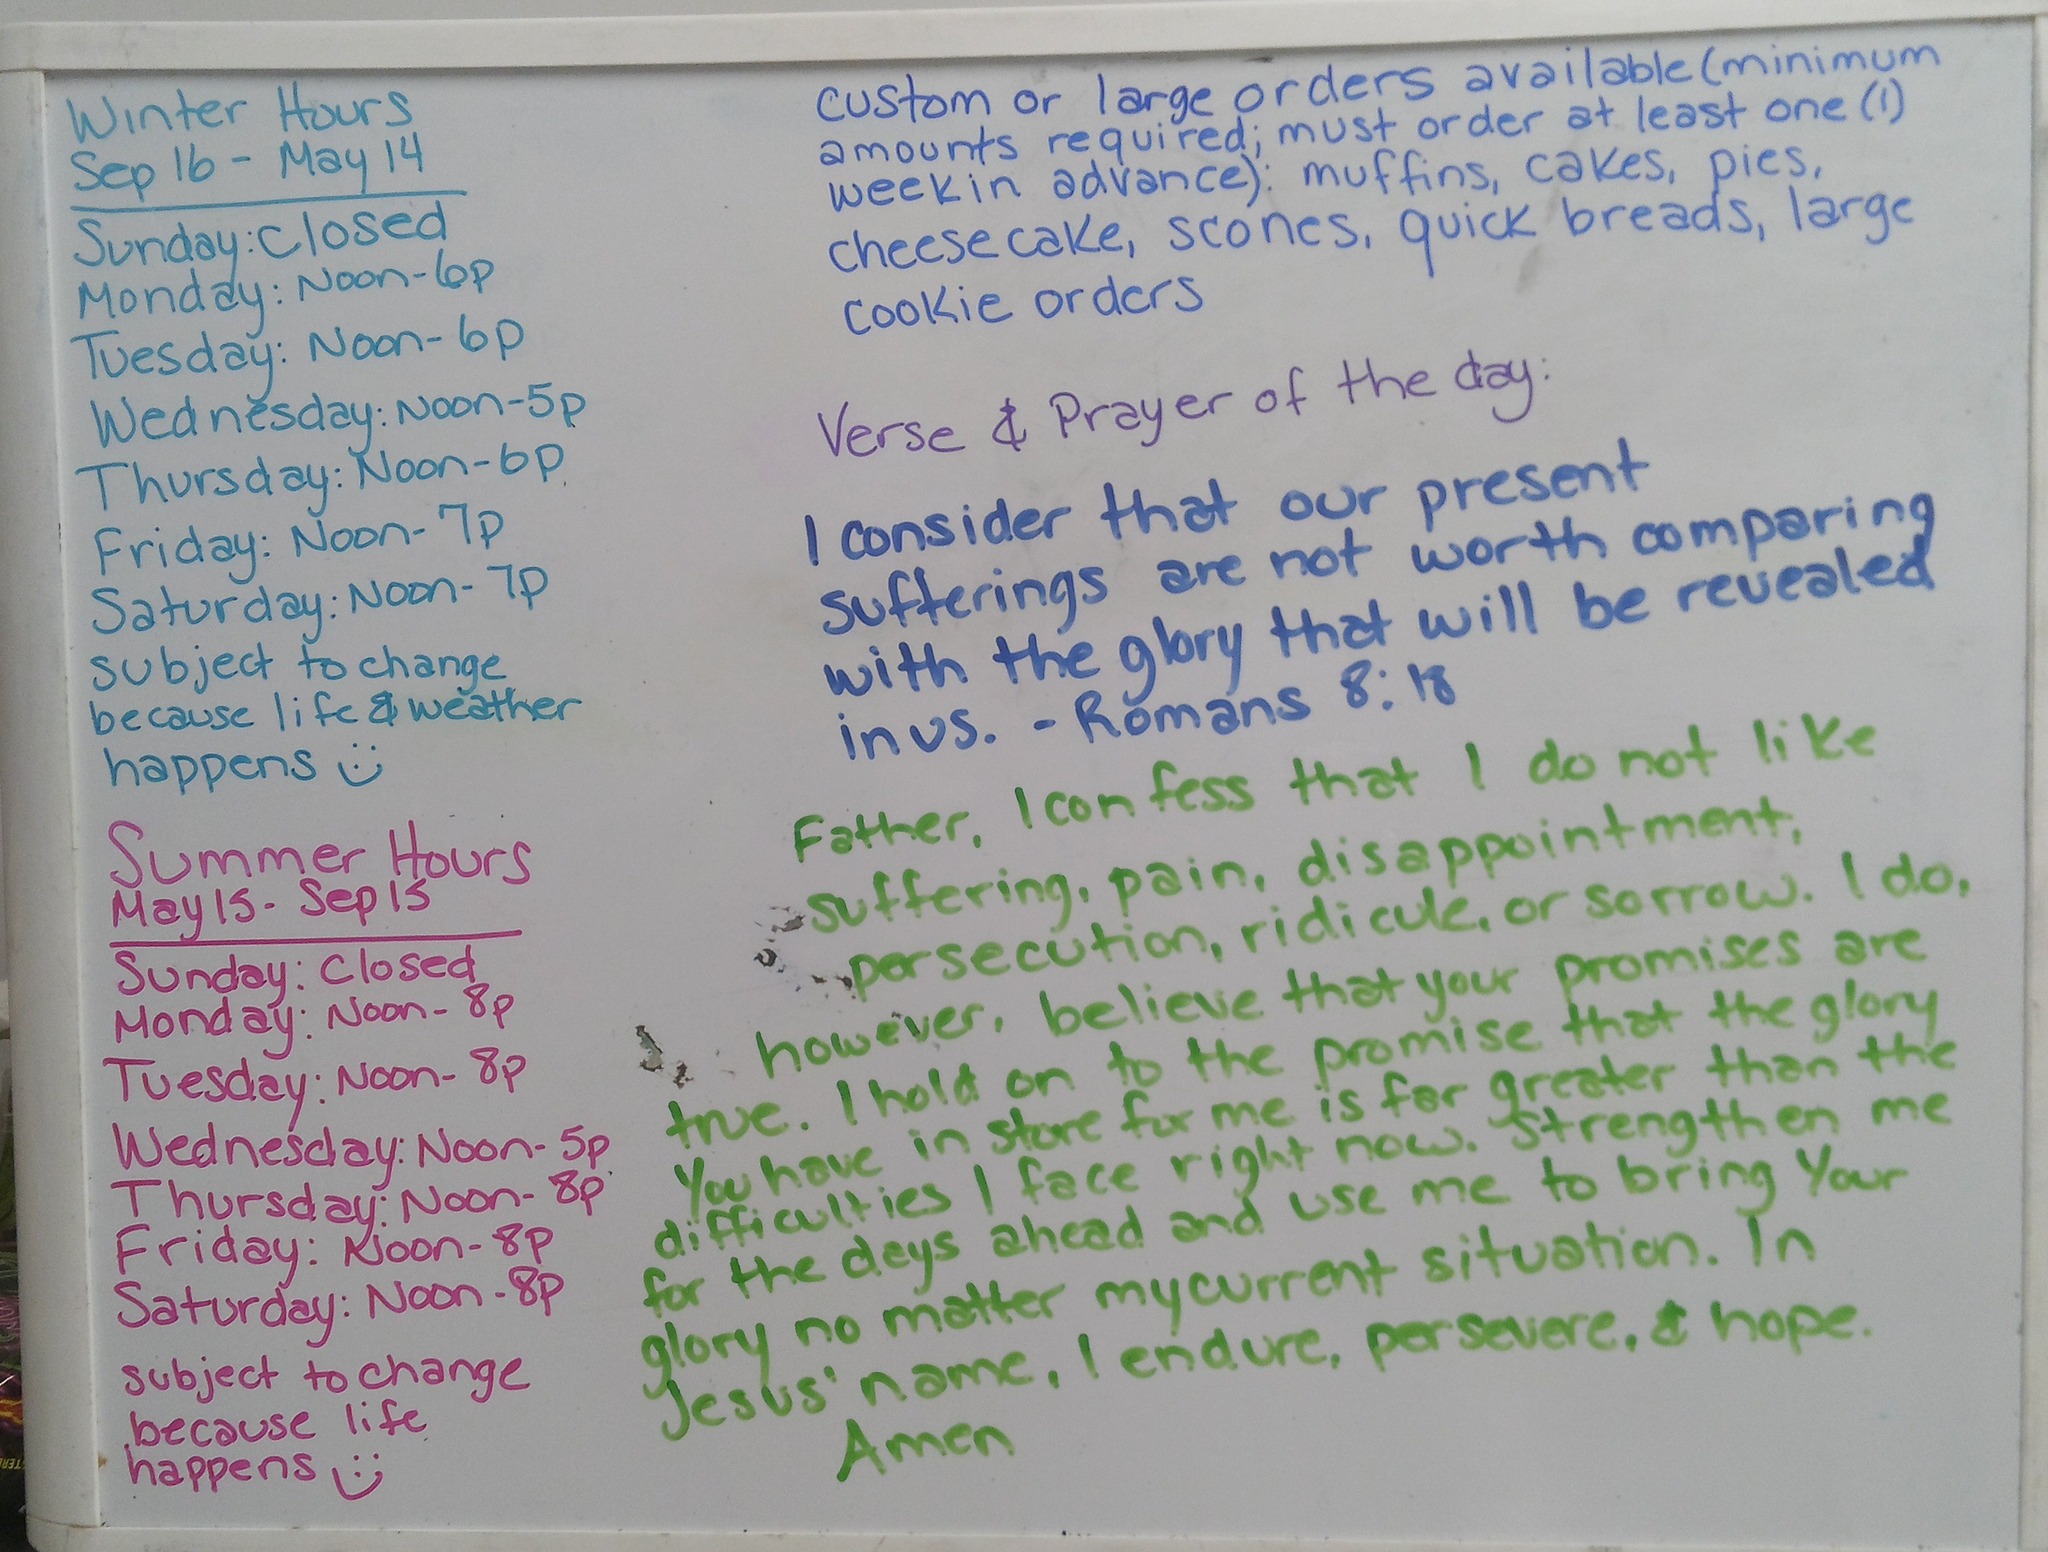 Winter Hours
Sep 16 - May 14
Sunday: Closed
Monday: Noon-6p
Tuesday: Noon-6p
Wednesday: Noon-5p
Thursday: Noon-6p
Friday: Noon-7p
Saturday: Noon-7p
subject to change
because life & weather
happens :)
Summer Hours
May 15 - Sep 15
Sunday: Closed
Monday: Noon-8p
Tuesday: Noon-8p
Wednesday: Noon-5p
Thursday: Noon-8p
Friday: Noon-8p
Saturday: Noon-8p
subject to change
because life
happens :)
custom or large orders available (minimum
amounts required; must order at least one (1)
week in advance): muffins, cakes, pies,
cheesecake, scones, quick breads, large
cookie orders
Verse & Prayer of the day:
I consider that our present
sufferings are not worth comparing
with the glory that will be revealed
in us. - Romans 8:18
Father, I confess that I do not like
suffering, pain, disappointment,
persecution, ridicule, or sorrow. I do,
however, believe that your promises are
true. I hold on to the promise that the glory
You have in store for me is far greater than the
difficulties I face right now. Strengthen me
for the days ahead and use me to bring Your
glory no matter my current situation. In
Jesus' name, I endure, persevere, & hope.
Amen